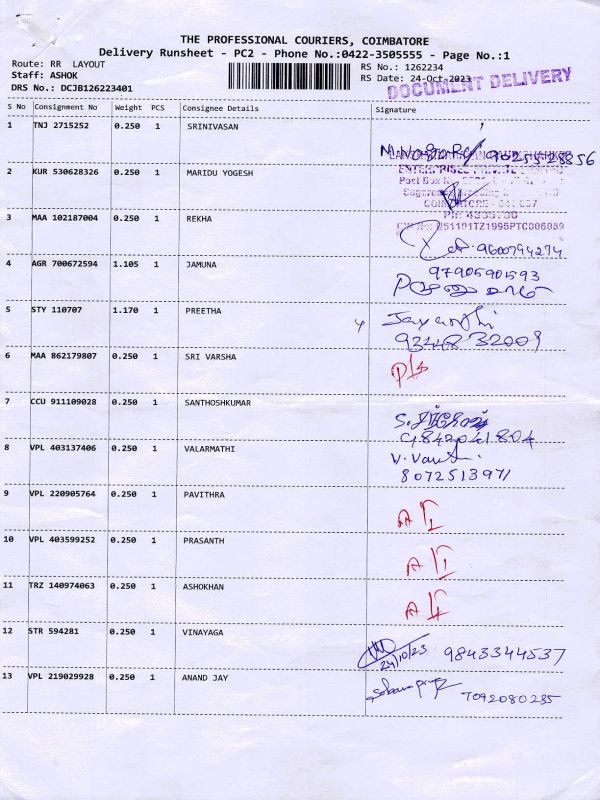 THE PROFESSIONAL COURIERS, COIMBATORE
Delivery Runsheet - PC2 - Phone No.:0422-3505555 - Page No.:1
Route: RR LAYOUT
Staff: ASHOK
DRS No.: DCJB126223401
RS No.: 1262234
RS Date: 24-Oct-2023
DOCUMENT DELIVERY
S No Consignment No Weight PCS Consignee Details Signature
1 TNJ 2715252 0.250 1 SRINIVASAN
2 KUR 530628326 0.250 1 MARIDU YOGESH
ENTERPRISES PRIVATE
Post Box
3 MAA 102187004 0.250 1 REKHA
9600794274
4 AGR 700672594 1.105 1 JAMUNA 9790590593
5 STY 110707 1.170 1 PREETHA Jayanthi
93448 32009
6 MAA 862179807 0.250 1 SRI VARSHA
7 CCU 911109028 0.250 1 SANTHOSHKUMAR
9842041804
8 VPL 403137406 0.250 1 VALARMATHI
8072513971
9 VPL 220905764 0.250 1 PAVITHRA
10 VPL 403599252 0.250 1 PRASANTH
11 TRZ 140974063 0.250 1 ASHOKHAN
12 STR 594281 0.250 1 VINAYAGA 9843344537
24/10/23
13 VPL 219029928 0.250 1 ANAND JAY 7092080235